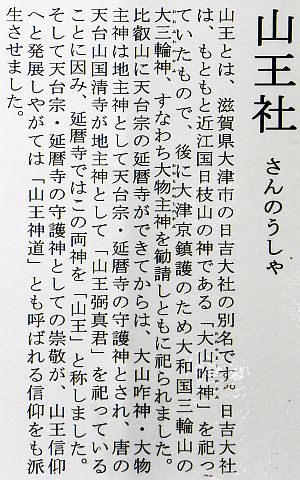 山王社
さんのうしゃ
山王とは、滋賀県大津市の日吉大社の別名です。日吉大社
は、もともと近江国日枝山の神である「大山咋神」を祀っ
ていたもので、後に大津京鎮護のため大和国三輪山の
大三輪神、すなわち大物主神を勧請しともに祀られました。
比叡山に天台宗の延暦寺ができてからは、大山咋神・大物
主神は地主神として天台宗・延暦寺の守護神とされ、唐の
天台山国清寺が地主神として「山王弼真君」を祀っている
ことに因み、延暦寺ではこの両神を「山王」と称しました。
そして天台宗・延暦寺の守護神としての崇敬が、山王信仰
へと発展しやがては「山王神道」とも呼ばれる信仰をも派
生させました。